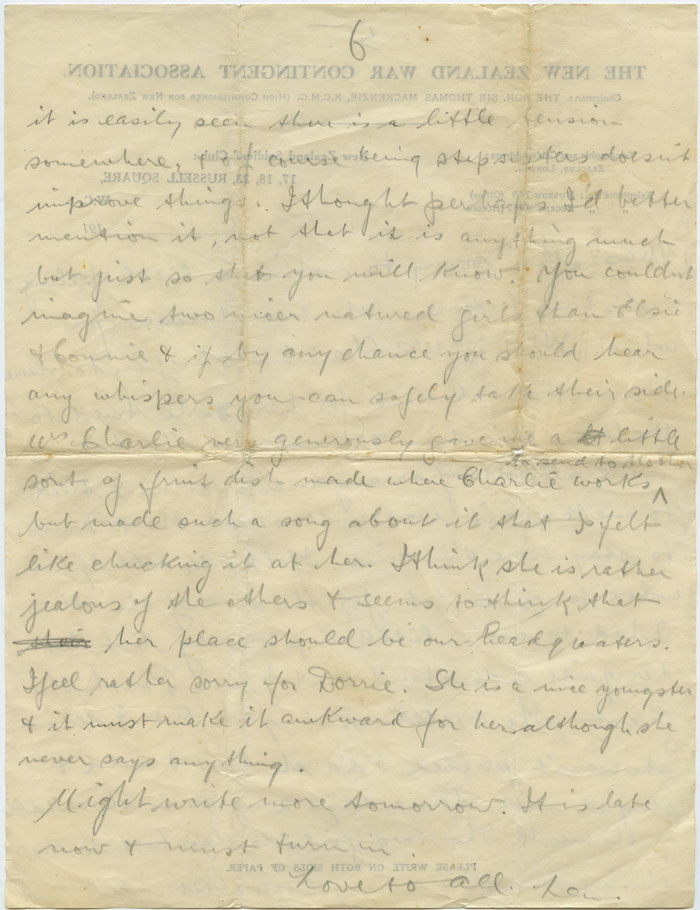 6
it is easily seen there is a little tension
somewhere, & of course being stepsisters doesn't
improve things. I thought perhaps I'd better
mention it, not that it is anything much
but just so that you will know. You couldn't
imagine two nicer natured girls than Elsie
& Connie & if by any chance you should hear
any whispers you can safely take their side.
Mrs Charlie very generously gave me a little
to send to Mother
sort of fruit dish made where Charlie works ^
but made such a song about it that I felt
like chucking it at her. I think she is rather
jealous of the others & seems to think that
her place should be our headquaters.
I feel rather sorry for Dorrie. She is a nice youngster
& it must make it awkward for her although she
never says anything.
Might write more tomorrow. It is late
now & must turn in.
Love to all.
THE NEW ZEALAND WAR CONTINGENT ASSOCIATION.
Chairman: THE HON. SIR THOMAS MACKENZIE, K.C.M.G. (HIGH COMMISSIONER FOR NEW ZEALAND).
New Zealand Soldiers' Club:
17, 18, 19, RUSSELL SQUARE,
PLEASE WRITE ON BOTH SIDES OF PAPER.